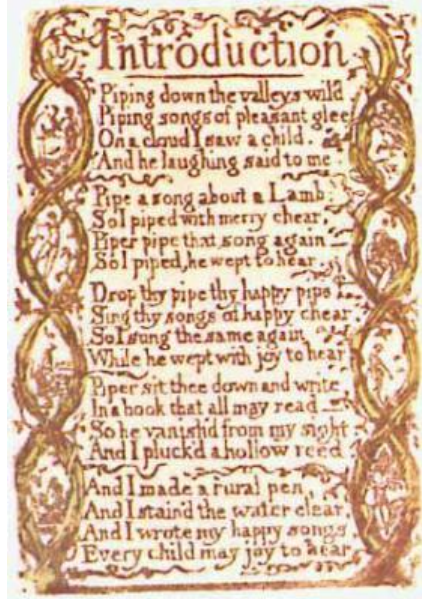 Introduction
Piping down the valleys wild
Piping songs of pleasant glee
On a cloud I saw a child.
And he laughing said to me.
Pipe a song about a Lamb:
So I piped with merry chear,
Piper pipe that song again—
So I piped, he wept to hear.
Drop thy pipe thy happy pipe
Sing thy songs of happy chear
So I sung the same again
While he wept with joy to hear
Piper sit thee down and write
In a book that all may read—
So he vanish'd from my sight
And I pluck'd a hollow reed
And I made a rural pen,
And I stain'd the water clear,
And I wrote my happy songs
Every child may joy to hear